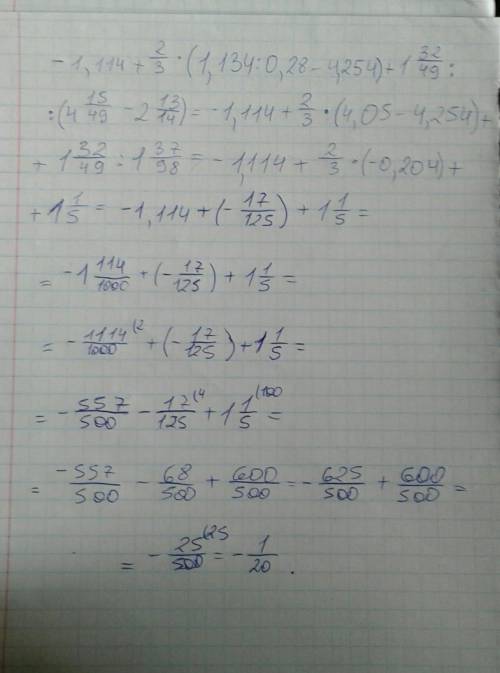 -1,114 + 2/3 · (1,134 : 0,28 - 4,254) + 1 32/49 :
: (4 15/49 - 2 13/14) = -1,114 + 2/3 · (4,05 - 4,254) +
+ 1 32/49 : 1 37/98 = -1,114 + 2/3 · (-0,204) +
+ 1 1/5 = -1,114 + (- 17/125) + 1 1/5 =
= -1 114/1000 + (- 17/125) + 1 1/5 =
= - 1114/1000 (2 + (- 17/125) + 1 1/5 =
= - 557/500 - 17/125 (4 + 1 1/5 (100 =
= -557/500 - 68/500 + 600/500 = - 625/500 + 600/500 =
= - 25/500 (25 = - 1/20 .